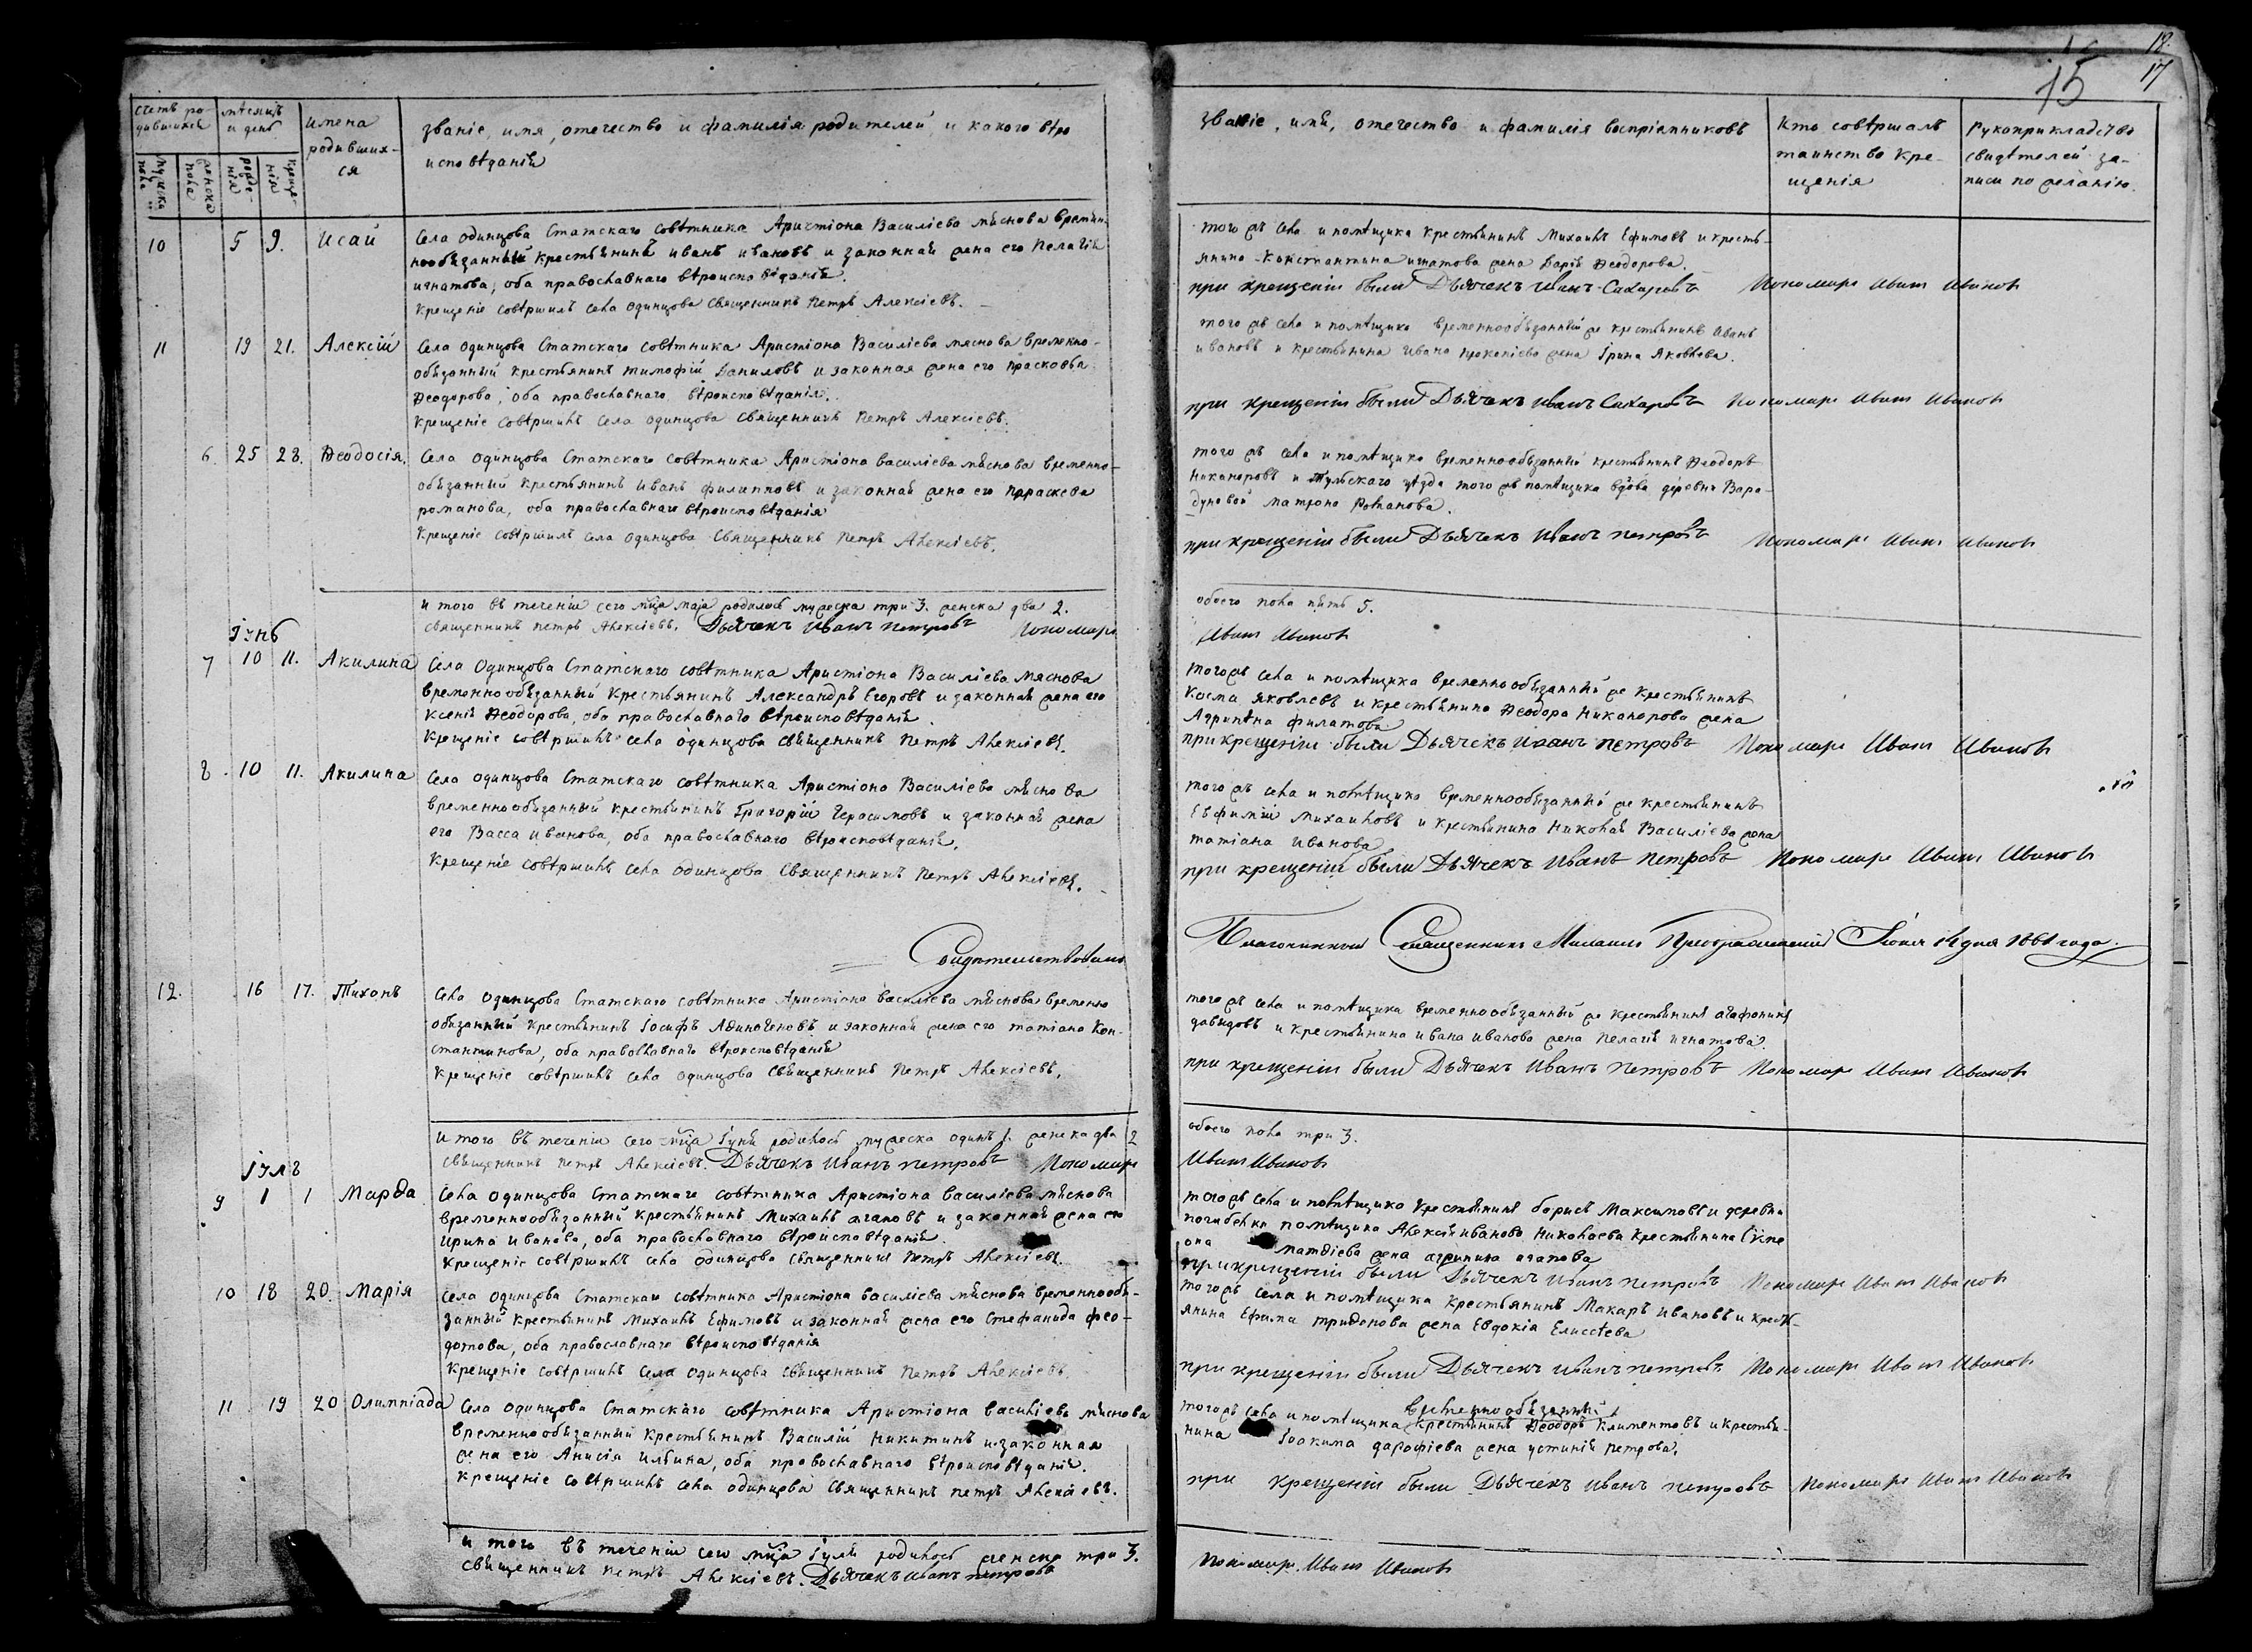 18.
15 17
счетъ родившихся
мѣсяцъ и день
имена родившихся
званіе, имя, отечество и фамилія родителей, и какого вѣроисповѣданія
званіе, имя, отечество и фамилія воспріемниковъ
Кто совѣршалъ таинство крещенія
Рукоприкладство свидѣтелей записи по желанію.
мужска пола
женска пола
рожденія
крещенія
10 5 9. Исаи Села Одинцова Статскаго совѣтника Аристіона Василіева мяснова времян-
нообязанный крестьянинъ иванъ ивановъ и законная жена его Пелагія
игнатова, оба православнаго вѣроисповѣданія.
Крещеніе совѣршилъ села одинцова Священникъ Петръ Алексіевъ.
того жъ села и помѣщика крестьянинъ Михаилъ Ефимовъ и кресть-
янина Константина игнатова жена Дарія Ѳеодорова.
при крещеніи были Дьячекъ Иванъ Сахаровъ Пономарь Иванъ Ивановъ
11 19 21. Алексій Села одинцова Статскаго совѣтника Аристіона Василіева мяснова временно-
обязанный крестьянинъ тимофій Даниловъ и законная жена его прасковья
Ѳеодорова, оба православнаго вѣроисповѣданія.
Крещеніе совѣршилъ села одинцова Священникъ Петръ Алексіевъ.
того жъ села и помѣщика временнообязанный же крестьянинъ Иванъ
ивановъ и крестьянина Ивана прокопіева жена Ірина Яковлева.
при крещеніи были Дьячекъ Иванъ Сахаровъ Пономарь Иванъ Ивановъ
6. 25 28. Ѳеодосія. Села одинцова Статскаго совѣтника Аристіона василіева мяснова временно-
обязанный крестьянинъ Иванъ филипповъ и законная жена его параскева
романова, оба православнаго вѣроисповѣданія
Крещеніе совѣршилъ села одинцова Священникъ Петръ Алексіевъ.
того жъ села и помѣщика временнообязанный крестьянинъ Ѳеодоръ
Никаноровъ и Тульскаго уѣзда того жъ помѣщика вдова деревни Вара-
дуновой матрона Романова.
при крещеніи были Дьячекъ Иванъ петровъ Пономарь Иванъ Ивановъ
и того въ теченіи сего мца маја родилось мужеска три 3. женска два 2.
обоего пола пять 5.
священникъ петръ Алексіевъ. Дьячекъ Иванъ Петровъ Пономарь
Иванъ Ивановъ
Іунь
7 10 11. Акилина Села Одинцова Статскаго совѣтника Аристіона Василіева Мяснова
временнообязанный крестьянинъ Александръ Егоровъ и законная жена его
Ксенія Ѳеодорова, оба православнаго вѣроисповѣданія.
Крещеніе совѣршилъ села одинцова священникъ Петръ Алексіевъ.
тогожъ села и помѣщика временнообязанный же крестьянинъ
Косма Яковлевъ и крестьянина Ѳеодора Никанорова жена
Агрипѣна филатова
при крещеніи были Дьячекъ Иванъ петровъ Пономарь Иванъ Ивановъ
8. 10 11. Акилина Села одинцова Статскаго совѣтника Аристіона Василіева мяснова
временнообязанный крестьянинъ Григорій Герасимовъ и законная жена
его Васса иванова, оба православнаго вѣроисповѣданія.
Крещеніе совѣршилъ села одинцова Священникъ Петръ Алексіевъ.
того жъ села и помѣщика временнообязанный же крестьянинъ
Евфимій Михаиловъ и крестьянина Николая Василіева жена
татіана Иванова
при крещеніи были Дьячекъ Иванъ петровъ Пономарь Иванъ Ивановъ
Свидѣтельствовалъ
Благочинный Священникъ Михаилъ Преображенскій Іюня дня 1861 года.
12. 16 17. Тихонъ Села одинцова Статскаго совѣтника Аристіона василіева мяснова временно
обязанный крестьянинъ Іосифъ Адиногеновъ и законная жена его татіана Кон-
стантинова, оба православнаго вѣроисповѣданія
Крещеніе совѣршилъ села одинцова Священникъ Петръ Алексіевъ.
того жъ села и помѣщика временнообязанный же крестьянинъ агафоникъ
давидовъ и крестьянина ивана иванова жена Пелагія игнатова.
при крещеніи были Дьячекъ Иванъ Петровъ Пономарь Иванъ Ивановъ
И того въ теченіи сего мца Іуня родилось мужеска одинъ 1. женска два 2
обоего пола три 3.
Священникъ Петръ Алексіевъ. Дьячекъ Иванъ петровъ Пономарь
Иванъ Ивановъ
Іуль
9 1 1 Марѳа Села одинцова Статскаго совѣтника Аристіона василіева мяснова
временнообязанный крестьянинъ Михаилъ агаповъ и законная жена его
Ирина иванова, оба православнаго вѣроисповѣданія.
Крещеніе совѣршилъ села одинцова священникъ Петръ Алексіевъ.
тогожъ села и помѣщика крестьянинъ борисъ Максимовъ и деревни
погибелки помѣщика Алексія иванова Николаева крестьянина
она матѳіева жена агрипина агапова
при крещеніи были Дьячекъ Иванъ петровъ Пономарь Иванъ Ивановъ
10 18 20. Марія Села одинцова Статскаго совѣтника Аристіона василіева мяснова временнообя-
занный крестьянинъ Михаилъ Ефимовъ и законная жена его Стефанида фео-
дотова, оба православнаго вѣроисповѣданія
Крещеніе совѣршилъ села одинцова Священникъ Петръ Алексіевъ.
тогожъ села и помѣщика крестьянинъ Макаръ ивановъ и крестья-
янина Ефима жена Евдокія Елисѣева
при крещеніи были Дьячекъ Иванъ петровъ Пономарь Иванъ Ивановъ
11 19 20 Олимпіада Села одинцова Статскаго совѣтника Аристіона василіева мяснова
временнообязанный крестьянинъ Василій Никитинъ и законная
жена его Анисія Ильина, оба православнаго вѣроисповѣданія.
крещеніе совѣршилъ села одинцова Священникъ петръ Алексіевъ.
временнообязанный
тогожъ села и помѣщика крестьянинъ Ѳеодоръ Климентовъ и крестья-
нина Іоакима дарофіева жена устинія петрова.
при крещеніи были Дьячекъ Иванъ петровъ Пономарь Иванъ Ивановъ
и того въ теченіи сего мца Іуля родилось женска три 3.
священникъ петръ Алексіевъ. Дьячекъ Иванъ петровъ
Пономарь Иванъ Ивановъ